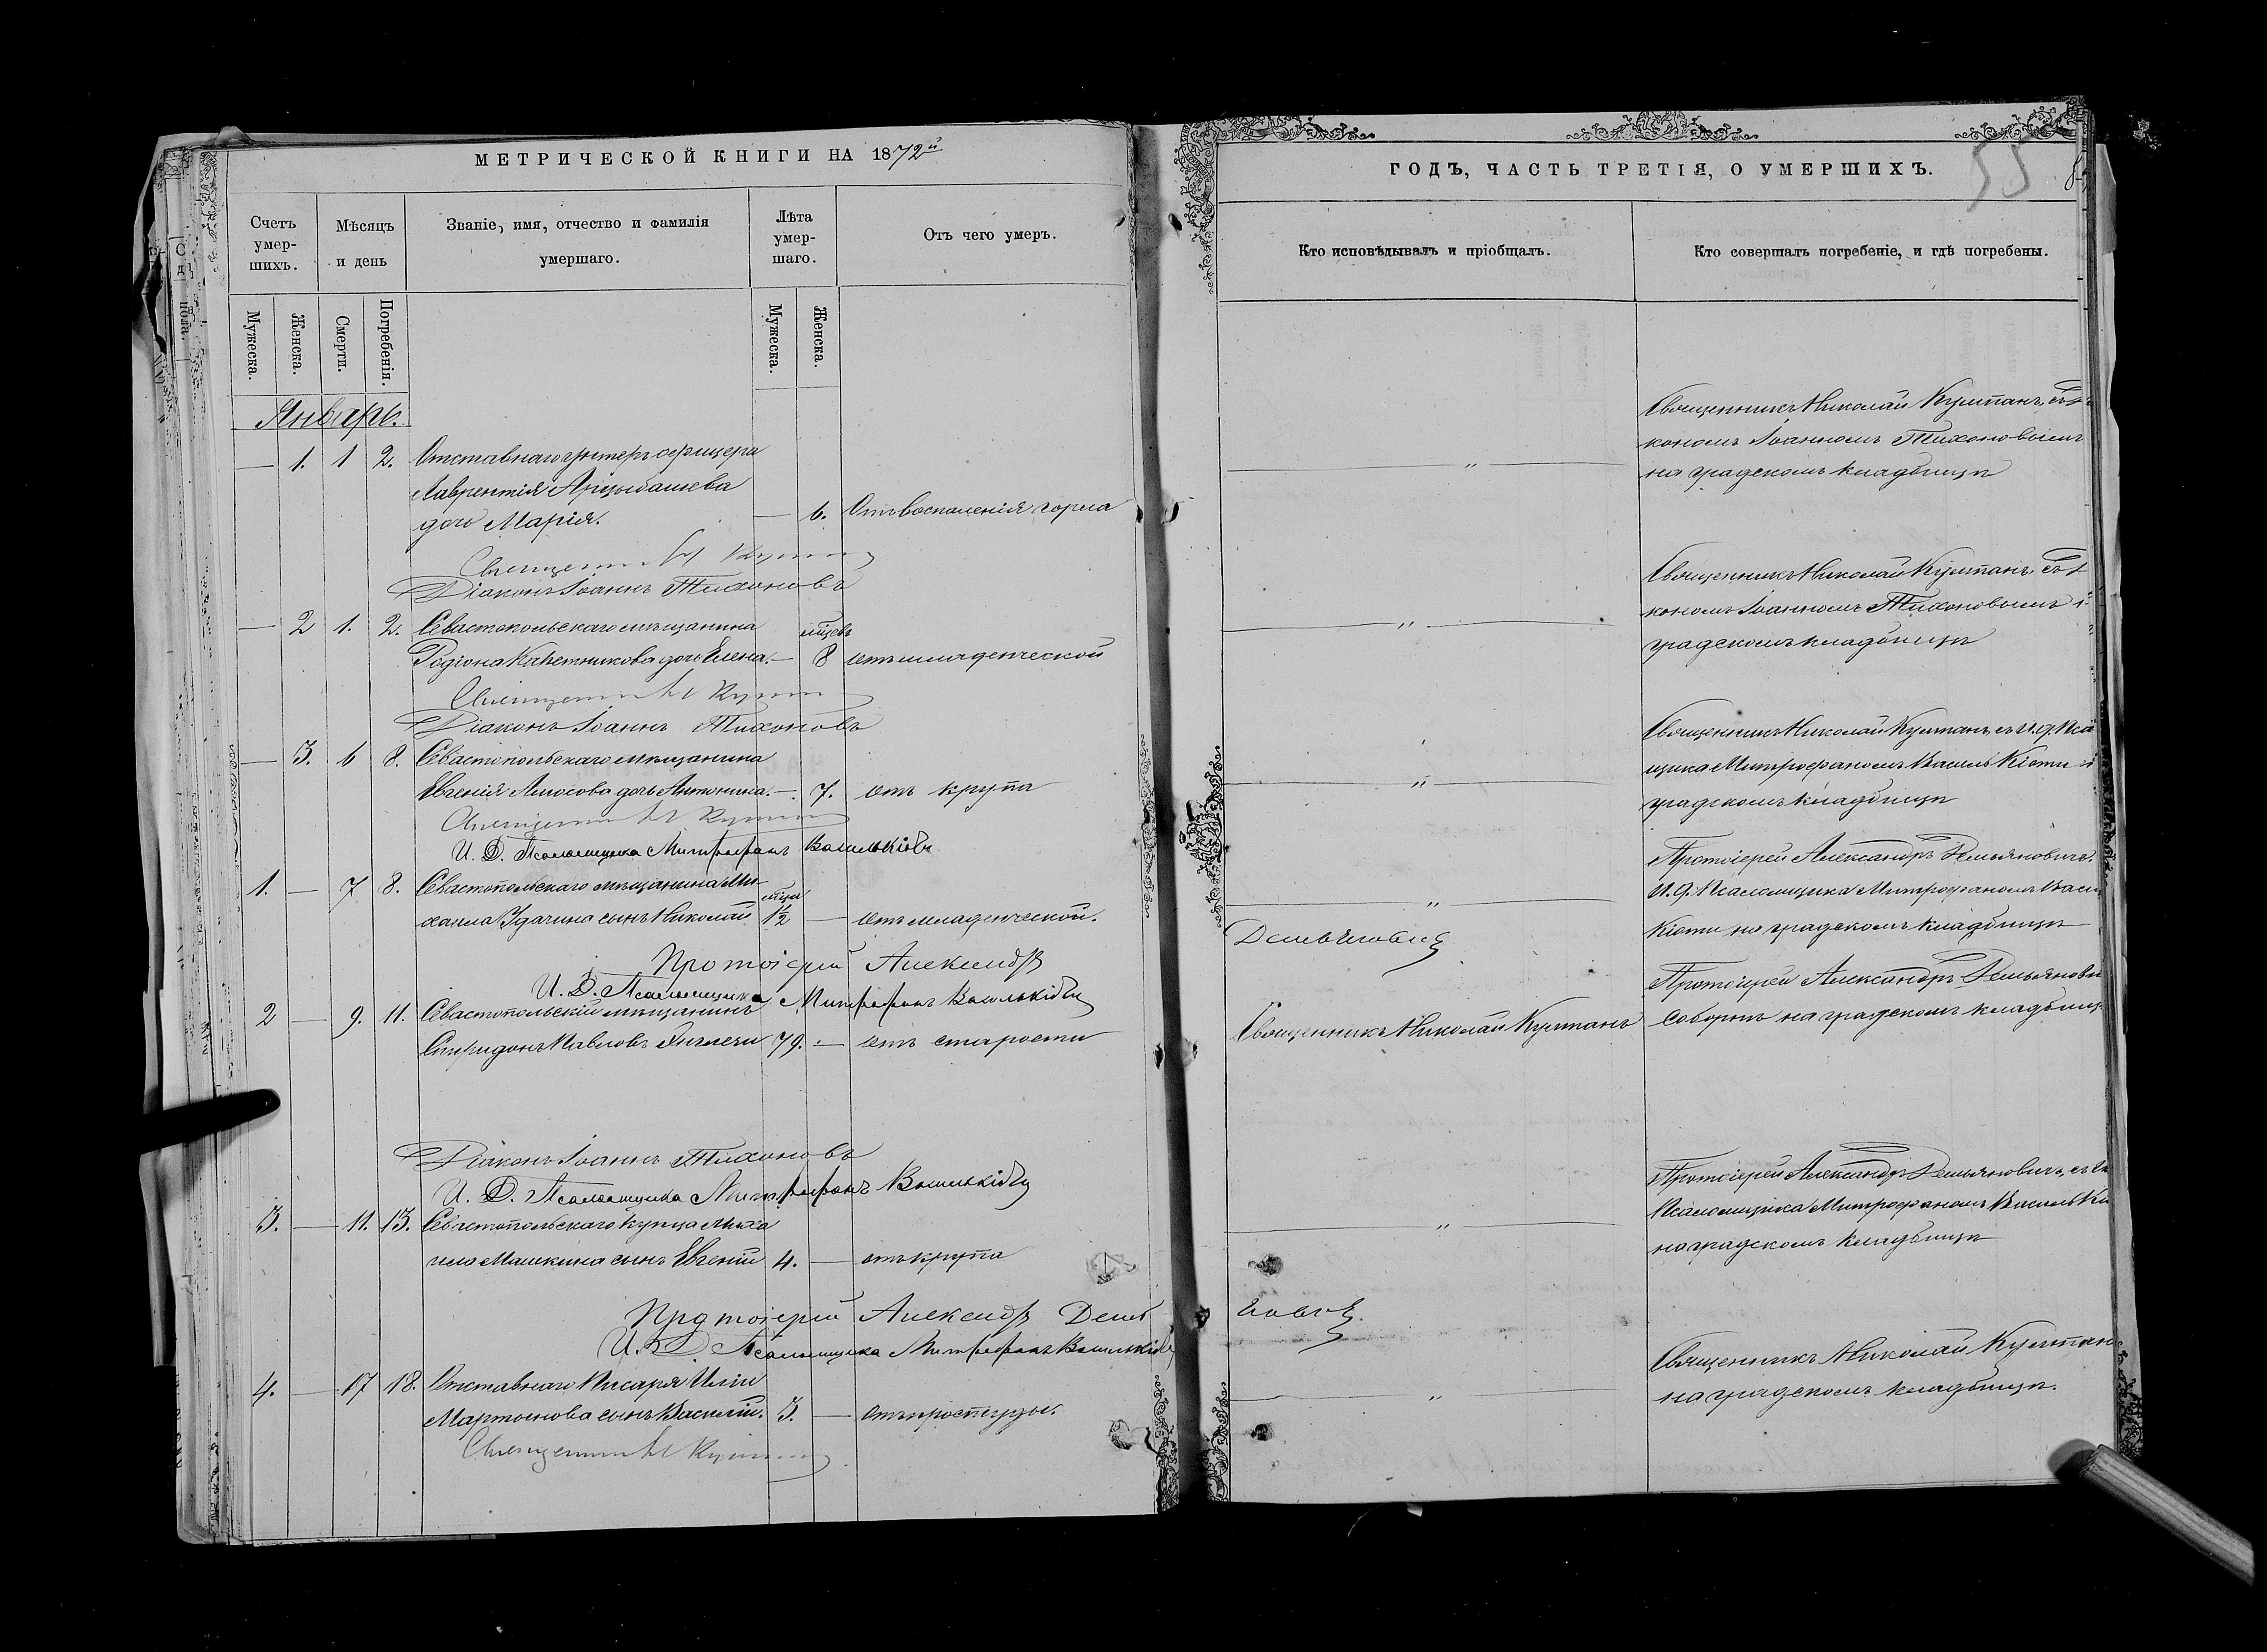 МЕТРИЧЕСКОЙ КНИГИ НА 1872й
Счетъ умер-шихъ.
Мѣсяцъ и день
Званіе, имя, отчество и фамилія умершаго.
Лѣта умер-шаго.
Отъ чего умеръ.
Мужеска.
Женска.
Смерти.
Погребенія.
Мужеска.
Женска.
Январь.
— 1. 1 2. Отставнаго унтеръ офицера
Лаврентія Арцыбашева
дочь Марія. — 6. Отъ воспаленія горла
Священникъ Н Култ
Діаконъ Іоаннъ Тихоновъ
— 2 1. 2. Севастопольскаго мѣщанина мцевъ
Родіона дочь Елена. — 8 отъ младенческой
Священникъ Н Култ
Діаконъ Іоаннъ Тихоновъ
— 3. 6 8. Севастопольскаго мѣщанина
Евгенія дочь Антонина. — 7. отъ крупа
Священникъ Н Култ
И. Д. Псаломщика Митрофанъ
1. — 7 8. Севастопольскаго мѣщанина Ми-
хаила сынъ Николай 1½ — отъ младенческой.
Протоіерей Александръ
И. Д. Псаломщика Митрофанъ
2 — 9. 11. Севастопольскій мѣщанинъ
Спиридонъ Павловъ 79. — отъ старости
Діаконъ Іоаннъ Тихоновъ
И. Д. Псаломщика Митрофанъ
3. — 11. 13. Севастопольскаго купца Миха
ила Машкина сынъ Евгеній 4. — отъ крупа
Протоіерей Александръ Демь
И. Д. Псаломщика Митрофанъ
4. — 17 18. Отставнаго Писаря Иліи
Мартынова сынъ Василій. 3. — отъ простуды.
Священникъ Н Култ
ГОДЪ, ЧАСТЬ ТРЕТІЯ, О УМЕРШИХЪ.
55
Кто исповѣдывалъ и пріобщалъ.
Кто совершалъ погребеніе, и гдѣ погребены.
Священникъ Николай Култанъ съ
кономъ Іоанномъ Тихоновымъ
— " — на градскомъ кладбищѣ
Священникъ Николай Култанъ съ
кономъ Іоанномъ Тихоновымъ
— " — градскомъ кладбищѣ
Священникъ Николай Култанъ съ И. д. Пса
щика Митрофаномъ
— " — градскомъ кладбищѣ
Протоіерей Александръ Демьяновичъ.
И. д. Псаломщика Митрофаномъ
— " — на градскомъ кладбищѣ
Демьяновичъ
Протоіерей Александръ Демьянови
Священникъ Николай Култанъ соборнѣ на градскомъ кладбищ
Протоіерей Александръ Демьяновичъ съ
Псаломщика Митрофаномъ
— " — на градскомъ кладбищѣ
новичъ.
Священникъ Николай Култан
— " — на градскомъ кладбищѣ.